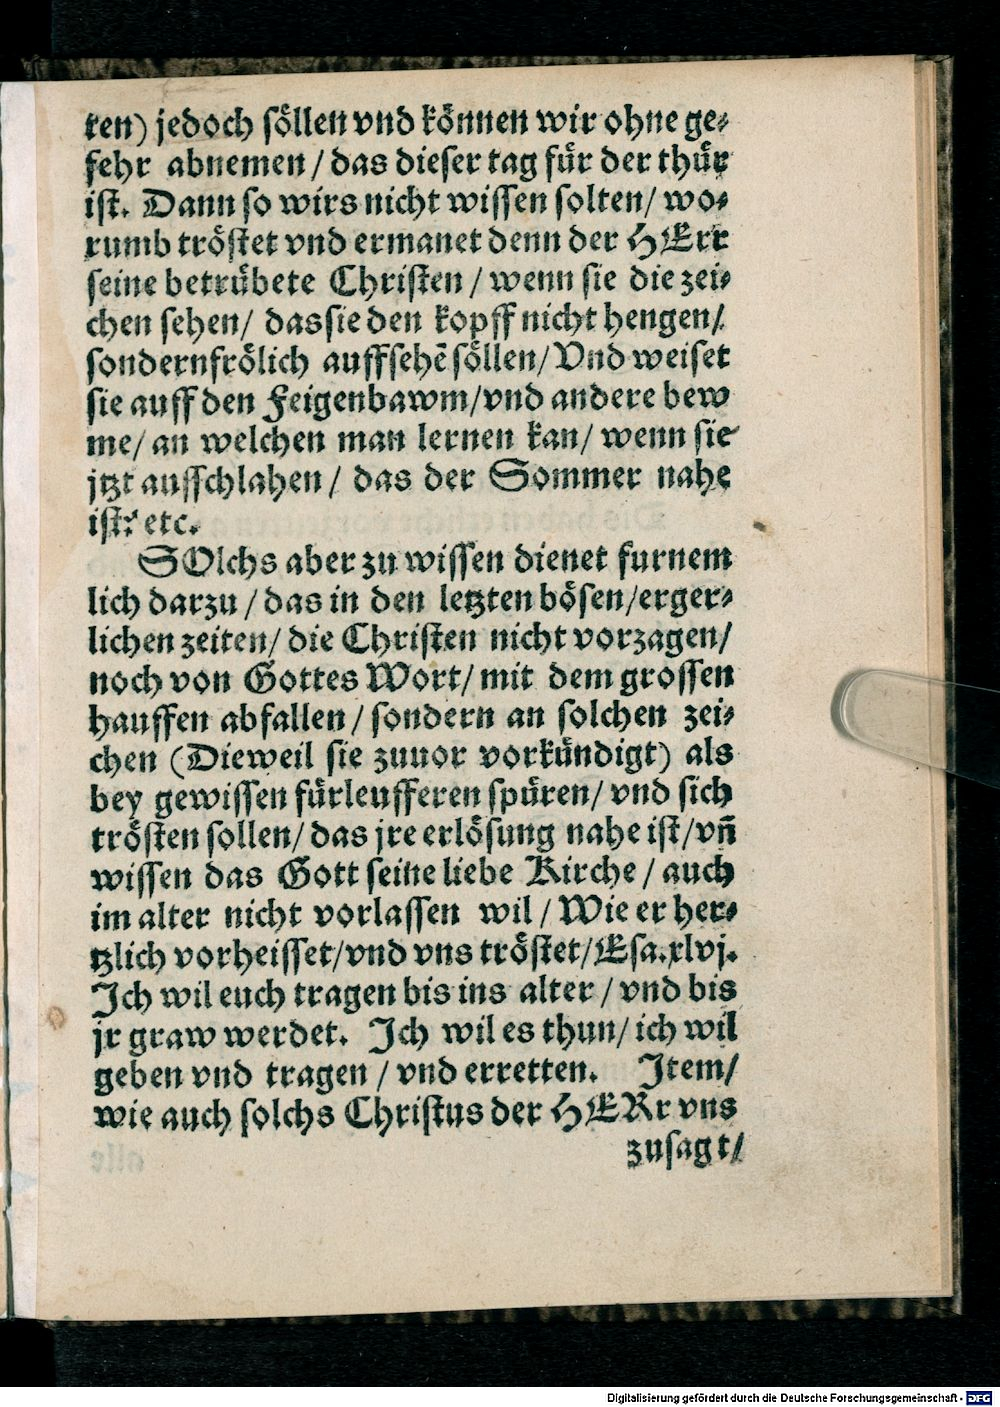 ten) jedoch söllen vnd können wir ohne ge-
fehr abnemen / das dieser tag für der thür
ist. Dann so wirs nicht wissen solten / wo-
rumb tröstet vnd ermanet denn der HErr
seine betrübete Christen / wenn sie die zei-
chen sehen / das sie den kopff nicht hengen /
sondern frölich auffsehē söllen / Vnd weiset
sie auff den Feigenbawm / vnd andere bew
me / an welchen man lernen kan / wenn sie
jtzt ausschlahen / das der Sommer nahe
ist? etc.
SOlchs aber zu wissen dienet furnem
lich darzu / das in den letzten bösen / erger-
lichen zeiten / die Christen nicht vorzagen /
noch von Gottes Wort / mit dem grossen
hauffen abfallen / sondern an solchen zei-
chen (Dieweil sie zuuor vorkündigt) als
bey gewissen fürleufferen spüren / vnd sich
trösten sollen / das jre erlösung nahe ist / vn̄
wissen das Gott seine liebe Kirche / auch
im alter nicht vorlassen wil / Wie er her-
tzlich vorheisset / vnd vns tröstet / Esa. xlvj.
Ich wil euch tragen bis ins alter / vnd bis
jr graw werdet. Ich wil es thun / ich wil
geben vnd tragen / vnd erretten. Item /
wie auch solchs Christus der HERr vns
zusagt /
Digitalisierung gefördert durch die Deutsche Forschungsgemeinschaft - DFG